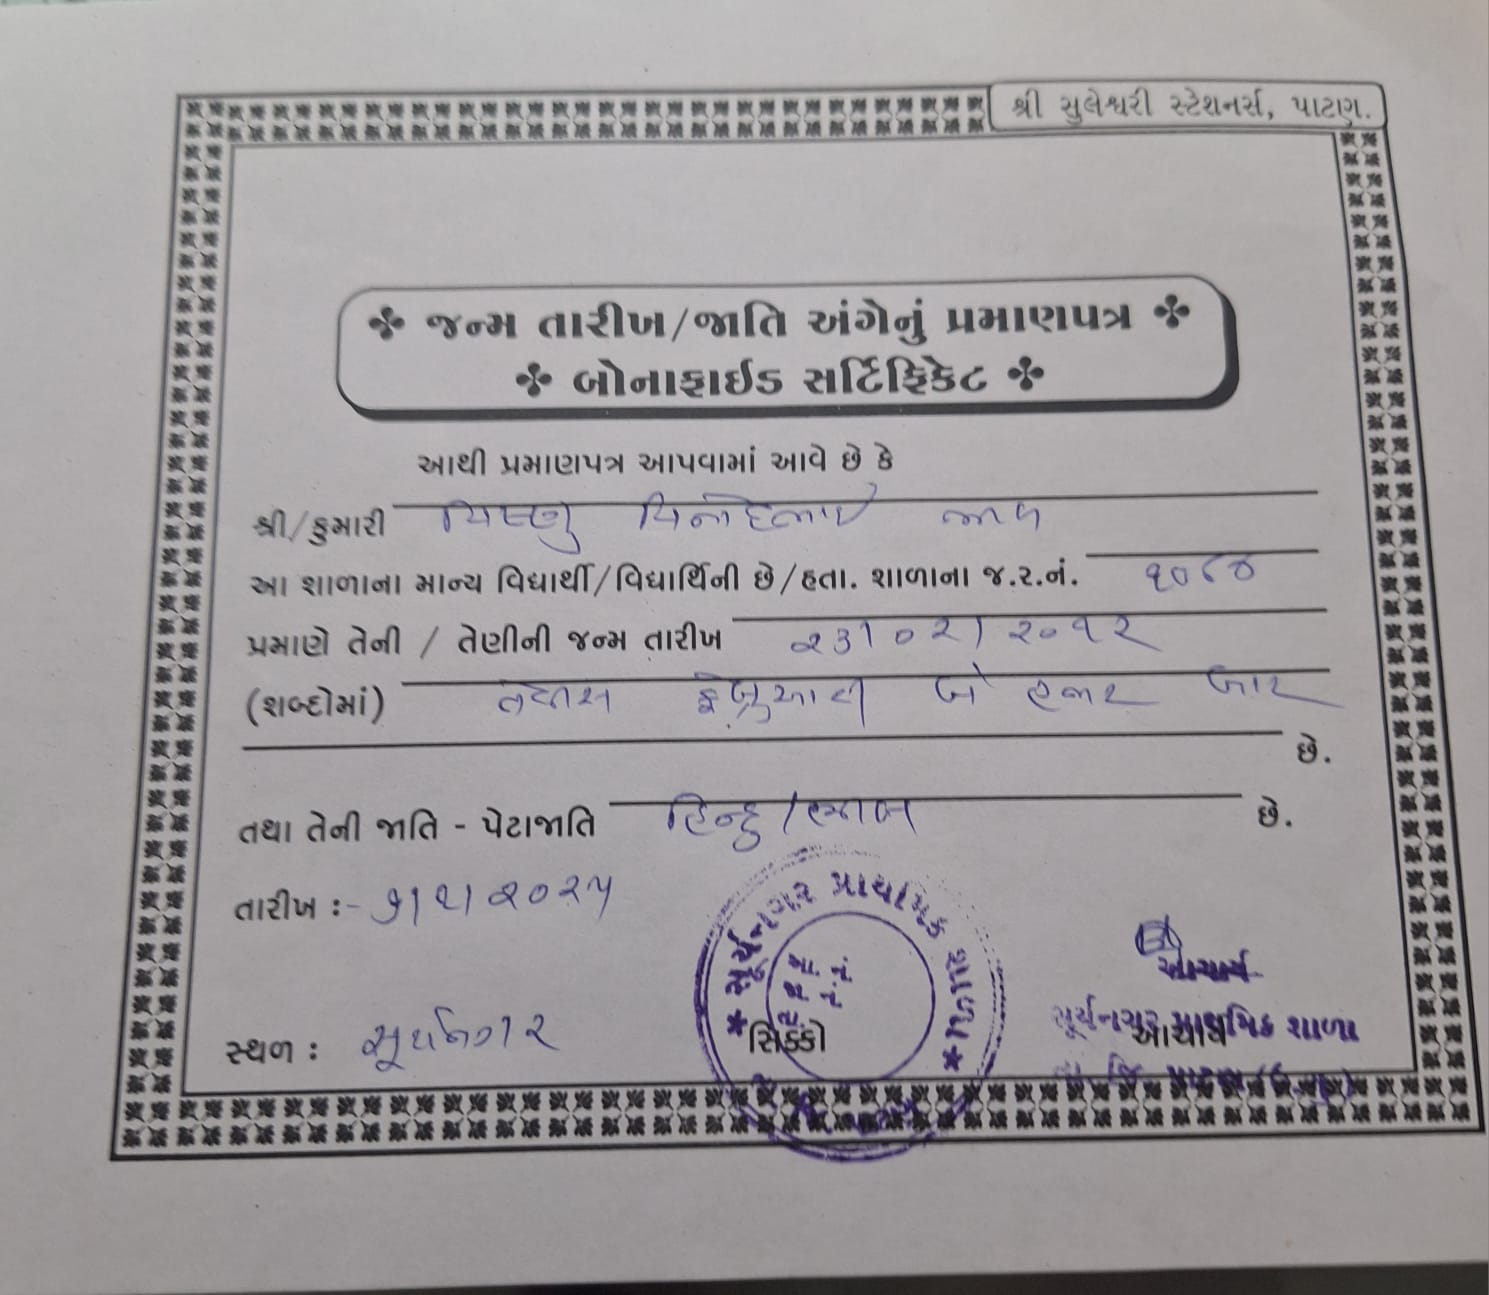 શ્રી સુલેશ્વરી સ્ટેશનર્સ, પાટણ.
જન્મ તારીખ/જાતિ અંગેનું પ્રમાણપત્ર
બોનાફાઈડ સર્ટિફિકેટ
આથી પ્રમાણપત્ર આપવામાં આવે છે કે
શ્રી/કુમારી વિષ્ણુ વિનોદભાઈ
આ શાળાના માન્ય વિદ્યાર્થી/વિદ્યાર્થિની છે/હતા. શાળાના જ.ર.નં.
પ્રમાણે તેની / તેણીની જન્મ તારીખ ૨૩/૦૨/૨૦૧૨
(શબ્દોમાં) ત્રેવીસ ફેબ્રુઆરી બે હજાર બાર
છે.
તથા તેની જાતિ - પેટાજાતિ હિન્દુ/ છે.
તારીખ :-
સૂર્યનગર પ્રાથમિક શાળા
આચાર્ય
સૂર્યનગર પ્રાથમિક શાળા
સ્થળ : સૂર્યનગર
સિક્કો
આચાર્ય